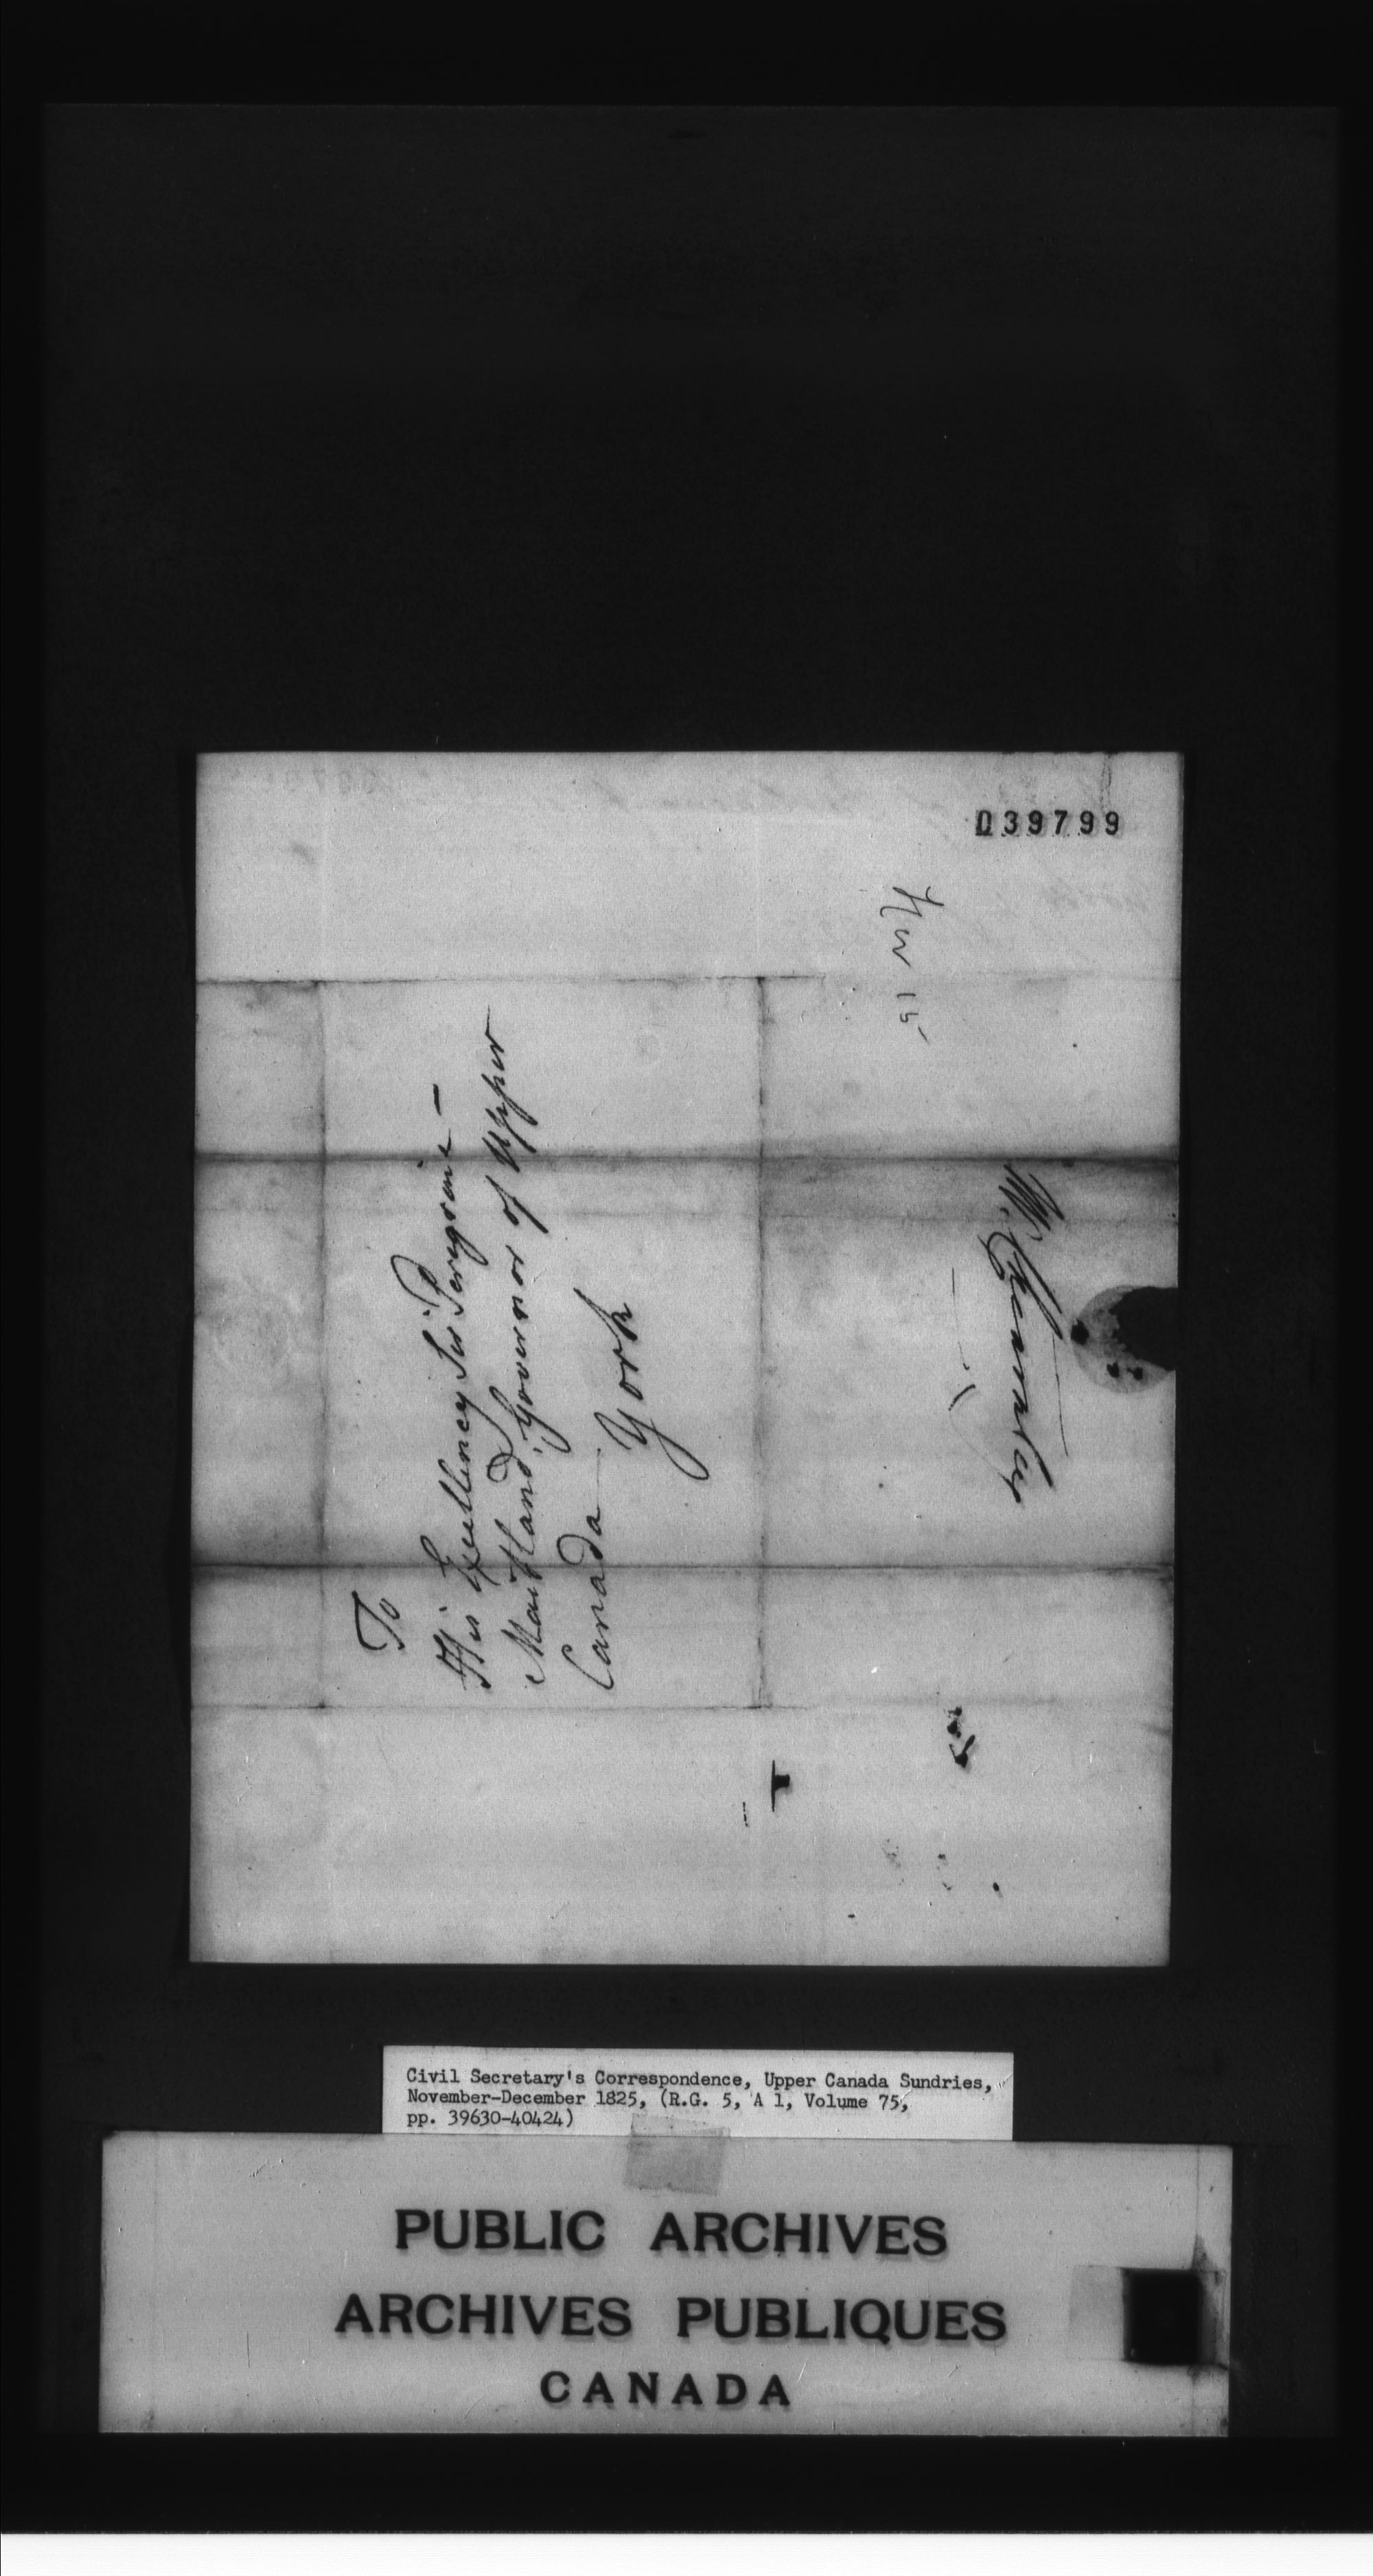 039799
Nov 15
To
His Excellency Sir Peregrine —
Maitland Governor of Upper
Canada —
York
Civil Secretary's Correspondence, Upper Canada Sundries,
November-December 1825, (R.G. 5, A 1, Volume 75,
pp. 39630-40424)
PUBLIC ARCHIVES
ARCHIVES PUBLIQUES
CANADA